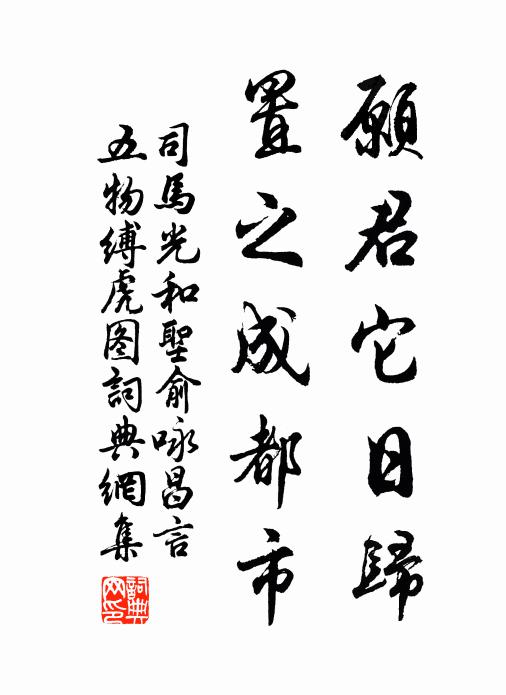 願君它日歸
置之成都市
司馬光和聖俞咏昌言
五物縛虎图詞典網集